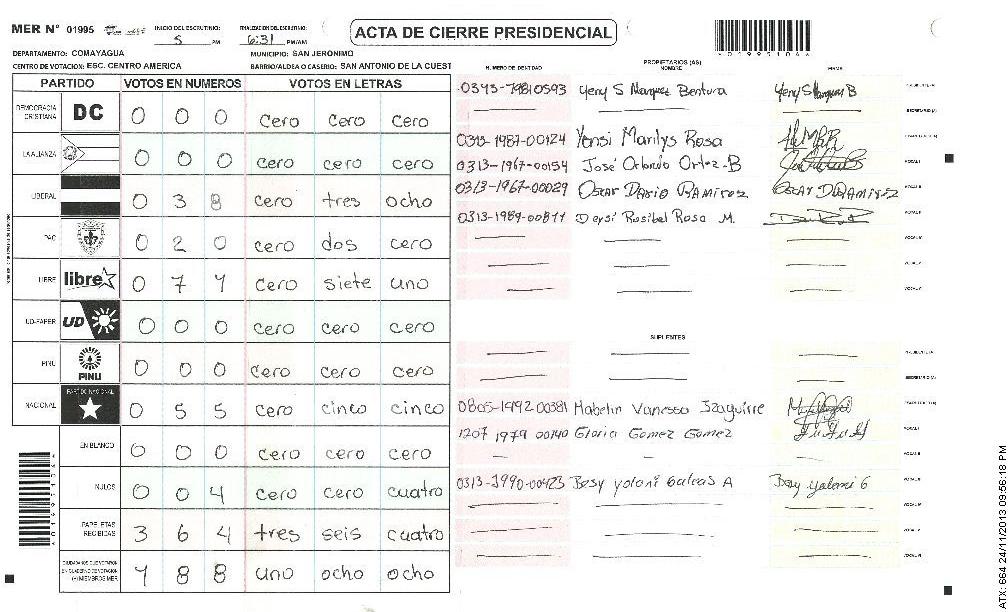 MER Nº 01995 INICIO DEL ESCRUTINIO: 5 PM FINALIZACION DEL ESCRUTINIO: 6:31 PM/AM
ACTA DE CIERRE PRESIDENCIAL
DEPARTAMENTO: COMAYAGUA MUNICIPIO: SAN JERONIMO
CENTRO DE VOTACION: ESC. CENTRO AMERICA BARRIO/ALDEA O CASERIO: SAN ANTONIO DE LA CUEST
PARTIDO VOTOS EN NUMEROS VOTOS EN LETRAS
DEMOCRACIA CRISTIANA DC 0 0 0 cero cero cero
LA ALIANZA 0 0 0 cero cero cero
LIBERAL 0 3 8 cero tres ocho
PAC 0 2 0 cero dos cero
LIBRE libre 0 7 1 cero siete uno
UD-FAPER UD 0 0 0 cero cero cero
PINU PINU 0 0 0 cero cero cero
NACIONAL PARTIDO NACIONAL 0 5 5 cero cinco cinco
EN BLANCO 0 0 0 cero cero cero
NULOS 0 0 4 cero cero cuatro
PAPELETAS RECIBIDAS 3 6 4 tres seis cuatro
CIUDADANOS QUE VOTARON EN CUADERNO DE VOTACION (+) MIEMBROS MER 1 8 8 uno ocho ocho
NUMERO DE IDENTIDAD PROPIETARIOS (AS) NOMBRE FIRMA
Yeny S Marquez Bentura Yeny S Marquez B PRESIDENTE (A)
SECRETARIO (A)
0313-1987-00124 Yensi Marilys Rosa
0313-1967-00154 José Orlando Ortez-B VOCAL I
0313-1967-00029 Oscar Dario Ramirez Oscar D Ramirez VOCAL II
0313-1989-00811 Deysi Rosibel Rosa M. VOCAL III
VOCAL IV
VOCAL V
VOCAL VI
SUPLENTES
PRESIDENTE (A)
SECRETARIO (A)
0805-1992-00381 Mabelin Vanessa Izaguirre
1207 1979 00140 Gloria Gomez Gomez VOCAL I
VOCAL II
0313-1990-00423 Besy yolani Galeas A Besy yolani G VOCAL III
VOCAL IV
VOCAL V
VOCAL VI
ATX: 664 24/11/2013 09:56:18 PM